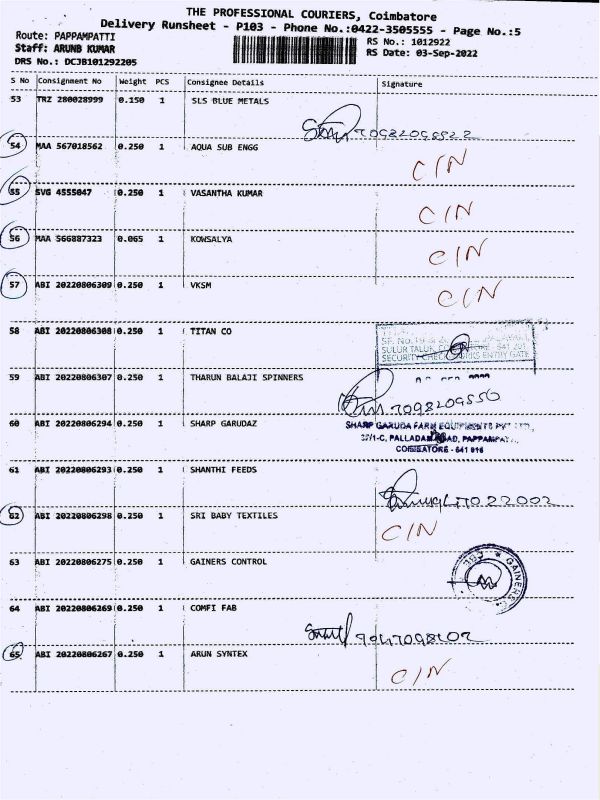 THE PROFESSIONAL COURIERS, Coimbatore
Delivery Runsheet - P103 - Phone No.:0422-3505555 - Page No.:5
Route: PAPPAMPATTI
RS No.: 1012922
Staff: ARUNB KUMAR
RS Date: 03-Sep-2022
DRS No.: DCJB101292205
S No Consignment No Weight PCS Consignee Details Signature
53 TRZ 280028999 0.150 1 SLS BLUE METALS
54 MAA 567018562 0.250 1 AQUA SUB ENGG
C/N
55 SVG 4555047 0.250 1 VASANTHA KUMAR
C/N
56 MAA 566887323 0.065 1 KOWSALYA
C/N
57 ABI 20220806309 0.250 1 VKSM
C/N
58 ABI 20220806308 0.250 1 TITAN CO
SULUR TALUK
SECURITY ENTRY GATE
59 ABI 20220806307 0.250 1 THARUN BALAJI SPINNERS
7098209550
60 ABI 20220806294 0.250 1 SHARP GARUDAZ
SHARP GARUDA FARM EQUIPMENTS PVT
37/1-C, PALLADAM ROAD,
COIMBATORE - 641 016
61 ABI 20220806293 0.250 1 SHANTHI FEEDS
62 ABI 20220806298 0.250 1 SRI BABY TEXTILES
C/N
63 ABI 20220806275 0.250 1 GAINERS CONTROL
GAINERS
64 ABI 20220806269 0.250 1 COMFI FAB
65 ABI 20220806267 0.250 1 ARUN SYNTEX
C/N